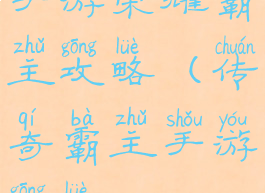 手游荣耀霸
zhǔ gōng lüè chuán
主攻略（传
qí bà zhǔ shǒu yóu
奇霸主手游
gōng lüè